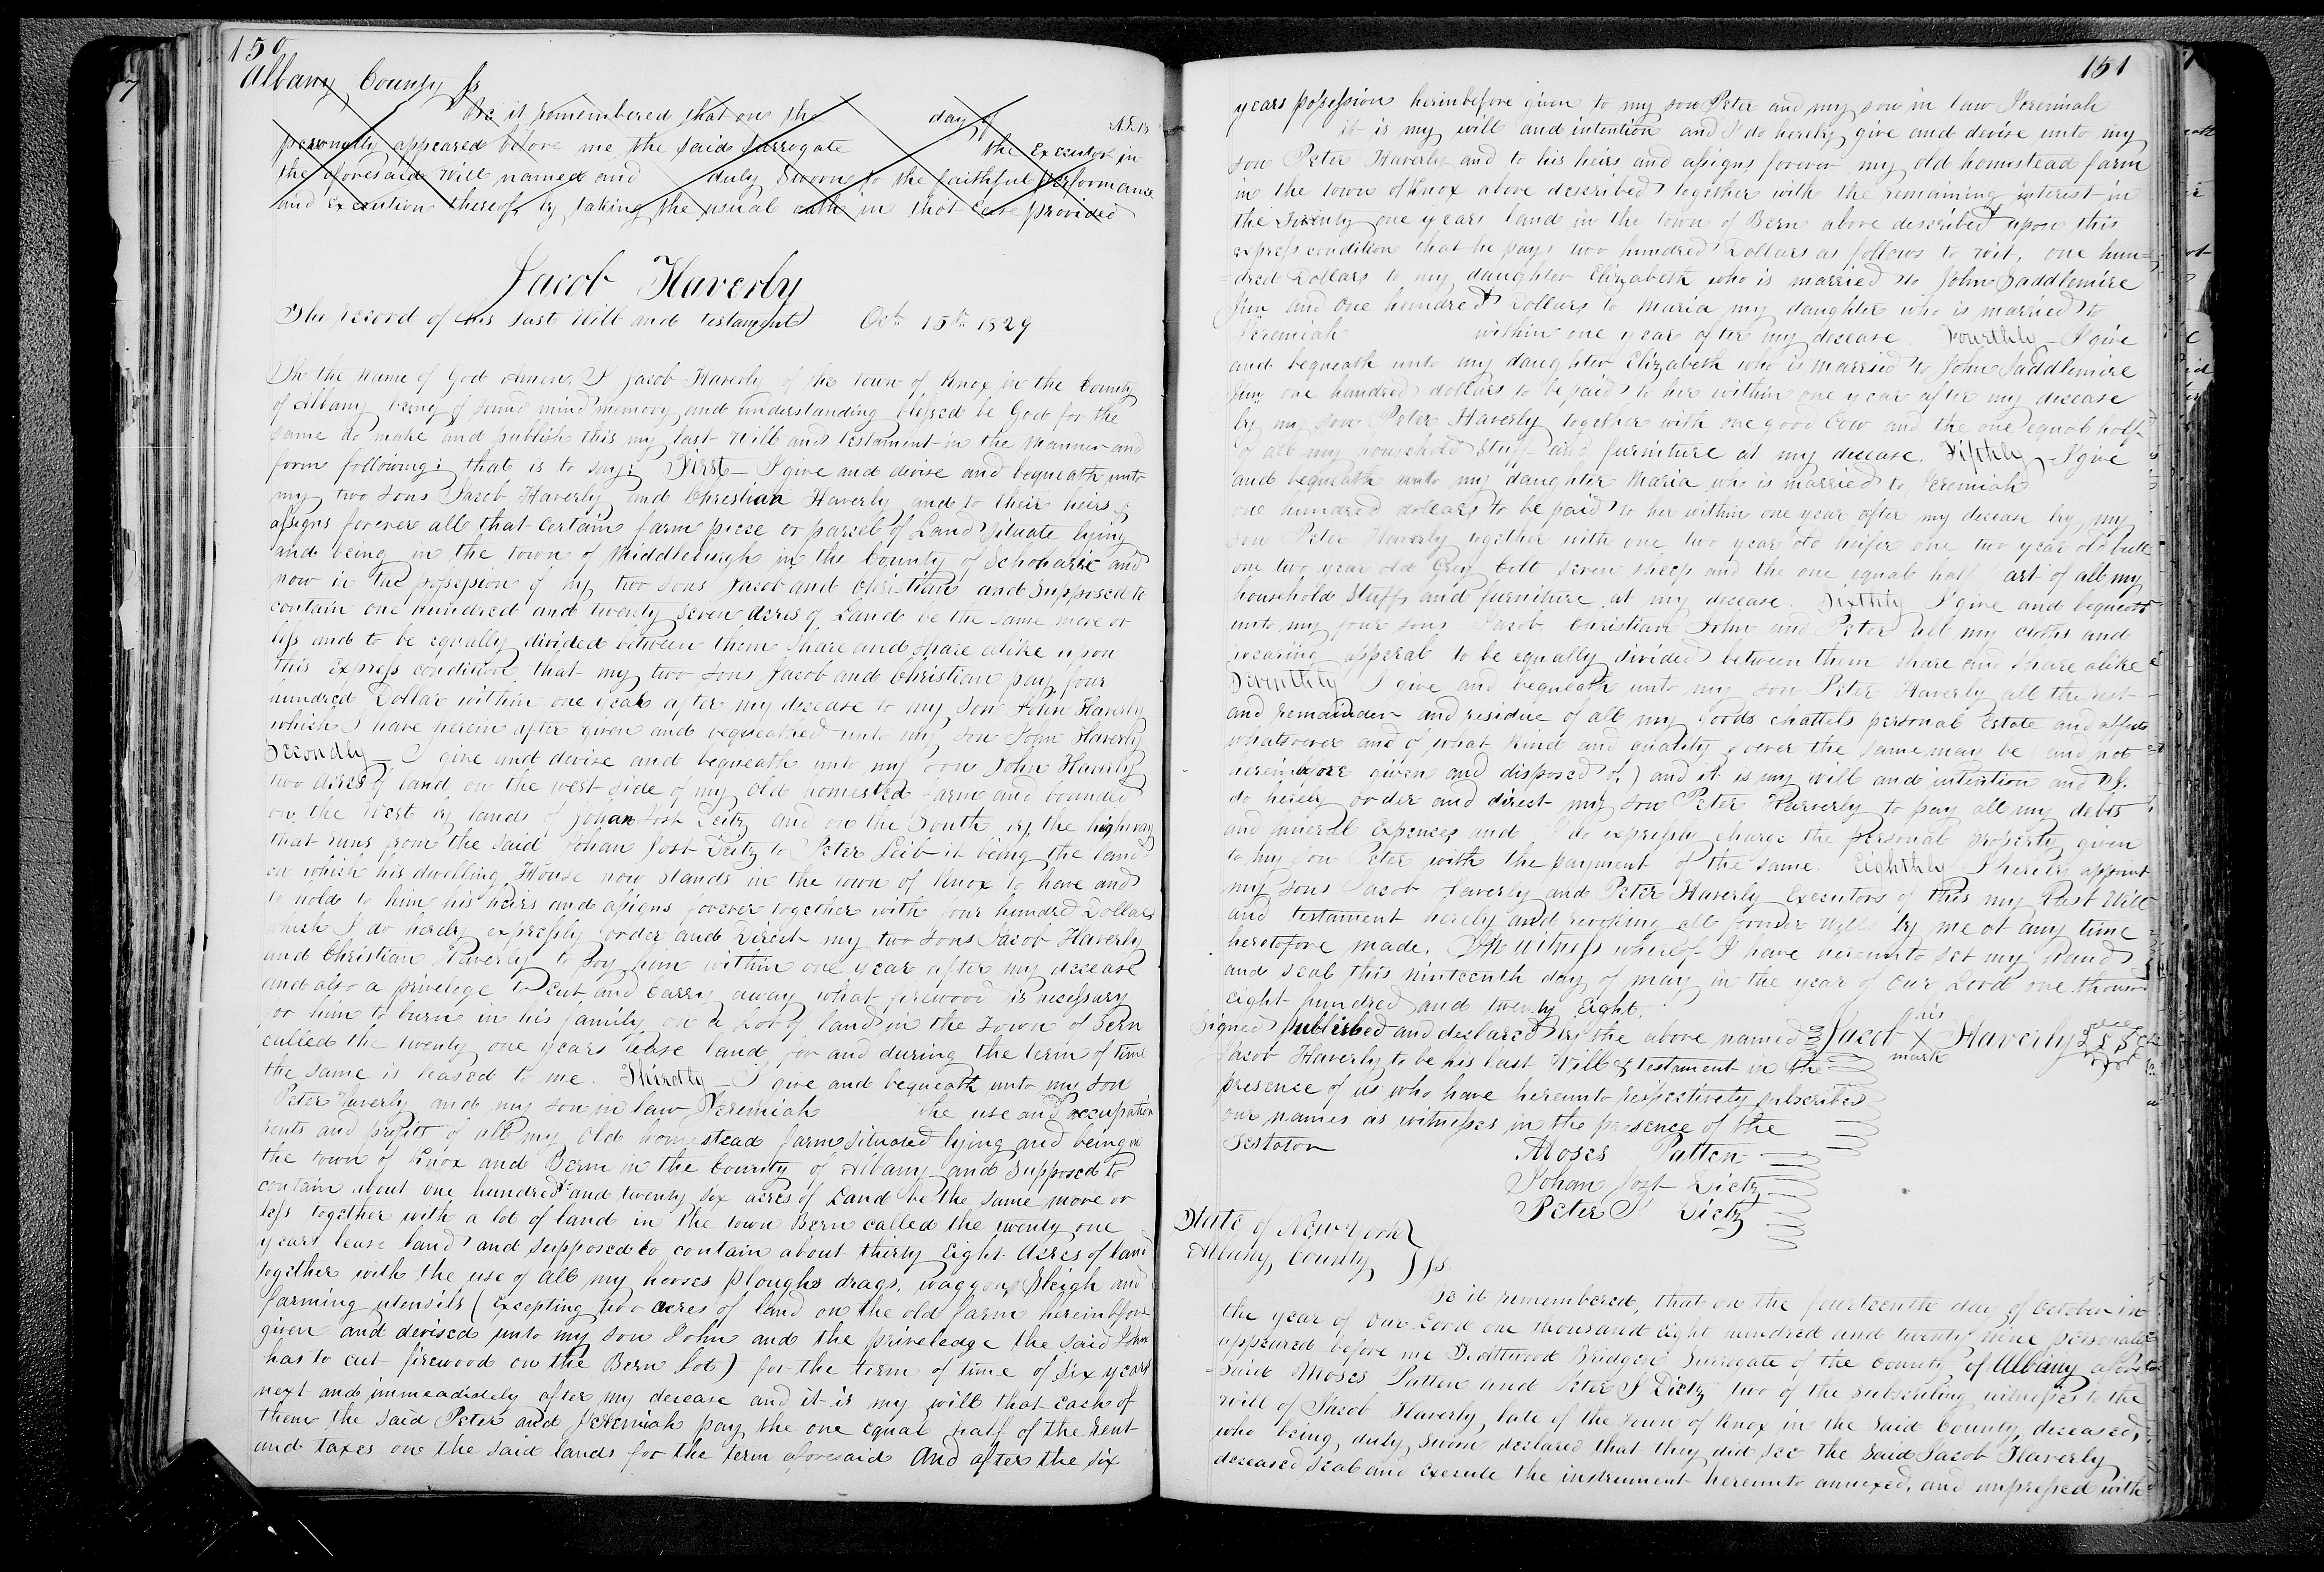 150
Albany County ss
Be it remembered that on the day of A.D. 18
personally appeared before me the said surrogate the Executor in
the aforesaid Will named and duly Sworn to the faithful performance
and Execution thereof by taking the usual oath in that Case provided
Jacob Haverly
The record of his last Will and testament Oct. 15th 1829
In the name of God Amen. I Jacob Haverly of the town of Knox in the County
of Albany being of sound mind memory and understanding blessed be God for the
same do make and publish this my last Will and testament in the manner and
form following: that is to say: First – I give and devise and bequeath unto
my two sons Jacob Haverly and Christian Haverly and to their heirs &
assigns forever all that certain farm piece or parcel of Land situate lying
and being in the town of Middleburgh in the County of Schoharie and
now in the possession of my two sons Jacob and Christian and supposed to
contain one hundred and twenty seven acres of Land be the same more or
less and to be equally divided between them share and share alike upon
this express condition that my two sons Jacob and Christian pay four
hundred Dollar within one year after my decease to my Son John Haverly
which I have herein after given and bequeathed unto my son John Haverly
Secondly – I give and devise and bequeath unto my son John Haverly
two acres of land on the west side of my old homested farm and bounded
on the West by lands of Johan Jost Deitz and on the South by the highway
that runs from the said Johan Jost Deitz to Peter Leib it being the land
on which his dwelling House now stands in the town of Knox to have and
to hold to him his heirs and assigns forever together with four hundred Dollars
which I do hereby expressly order and Direct my two sons Jacob Haverly
and Christian Haverly to pay him within one year after my decease
and also a privelege to cut and carry away what firewood is necessary
for him to burn in his family on a Lot of land in the Town of Bern
called the twenty one years lease land for and during the term of time
the same is leased to me. Thirdly – I give and bequeath unto my son
Peter Haverly and my son in law Jeremiah the use and occupation
rents and profits of all my Old homestead farm situated lying and being in
the town of Knox and Bern in the County of Albany and supposed to
contain about one hundred and twenty six acres of Land be the same more or
less together with a lot of land in the town Bern called the twenty one
years lease land and supposed to contain about thirty Eight Acres of land
together with the use of all my horses ploughs drags, waggons Sleigh and
farming utensils (Excepting two acres of land on the old farm hereinbefore
given and devised unto my son John and the priveledge the said John
has to cut firewood on the Bern Lot) for the term of time of Six years
next and immeadiately after my decease and it is my will that each of
them the said Peter and Jeremiah pay the one equal half of the rent
and taxes on the said lands for the term aforesaid And after the six
151
years possession herinbefore given to my son Peter and my son in law Jeremiah
it is my will and intention and I do hereby give and devise unto my
son Peter Haverly and to his heirs and assigns forever my old homestead farm
in the town of Knox above described together with the remaining interest in
the twenty one years land in the town of Bern above described upon this
express condition that he pays two hundred Dollars as follows to wit, one hun=
=dred Dollars to my daughter Elizabeth who is married to John Saddlemire
Jun and One hundred Dollars to Maria my daughter who is married to
Jeremiah within one year after my decease. Fourthly – I give
and bequeath unto my daughter Elizabeth who is married to John Saddlemire
Jun one hundred dollars to be paid to her within one year after my decease
by my son Peter Haverly together with one good Cow and the one equal half
of all my household Stuff and furniture at my decease. Fifthly – I give
and bequeath unto my daughter Maria who is married to Jeremiah
one hundred dollars to be paid to her within one year after my decease by my
son Peter Haverly together with one two year old heifer one two year old bull
one two year old Grey Colt seven sheep and the one equal half art of all my
household Stuff and furniture at my decease. Sixthly I give and bequeath
unto my four sons Jacob, Christian John and Peter all my cloths and
wearing apperal to be equally divided between them share and share alike
Seventhly I give and bequeath unto my son Peter Haverly all the rest
and remainder and residue of all my goods chattels personal Estate and effects
whatsoever and of what kind and quality soever the same may be (and not
given and disposed of.) and it is my will and intention and I
do hereby order and direct my son Peter Haverly to pay all my debts
and funeral Expences and I do expressly charge the personal property given
to my son Peter with the payment of the same. Eighthly I hereby appoint
my sons Jacob Haverly and Peter Haverly Executors of this my Last Will
and testament hereby and revoking all former Wills by me at any time
heretofore made. In Witness whereof I have hereunto set my Hand
and seal this ninteenth day of May in the year of Our Lord one thousand
Eight hundred and twenty Eight.
Signed published and declared by the above named Jacob his X mark Haverly L.S.
Jacob Haverly to be his last Will & testament in the
presence of us who have hereunto respectively subscribed
our names as witnesses in the presence of the
Testator
Moses Patten
Johan Jost Dietz
Peter S Dietz
State of New York
Albany County ss
Be it remembered, that on the fourteenth day of October in
the year of Our Lord one thousand Eight hundred and twenty nine personally
appeared before me Surrogate of the County of Albany afore
=said Moses Patten and Peter S Dietz two of the subscribing witnesses to the
will of Jacob Haverly, late of the Town of Knox in the said County, deceased,
who being duly Sworn declared that they did see the said Jacob Haverly
deceased, seal and Execute the instrument hereunto annexed, and impressed with